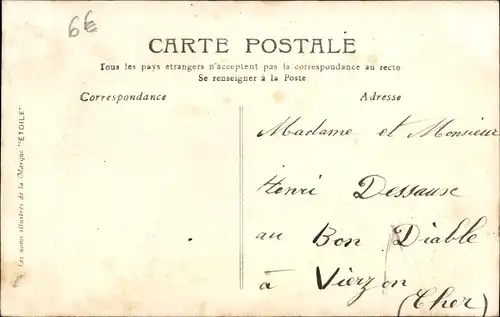 6€
CARTE POSTALE
Tous les pays étrangers n'acceptent pas la correspondance au recto
Se renseigner à la Poste
Correspondance
Adresse
Madame et Monsieur
Henri Dessaux
au Bon Diable
à Vierzon
(Cher)
Les noms illustrés de la Marque "ÉTOILE"